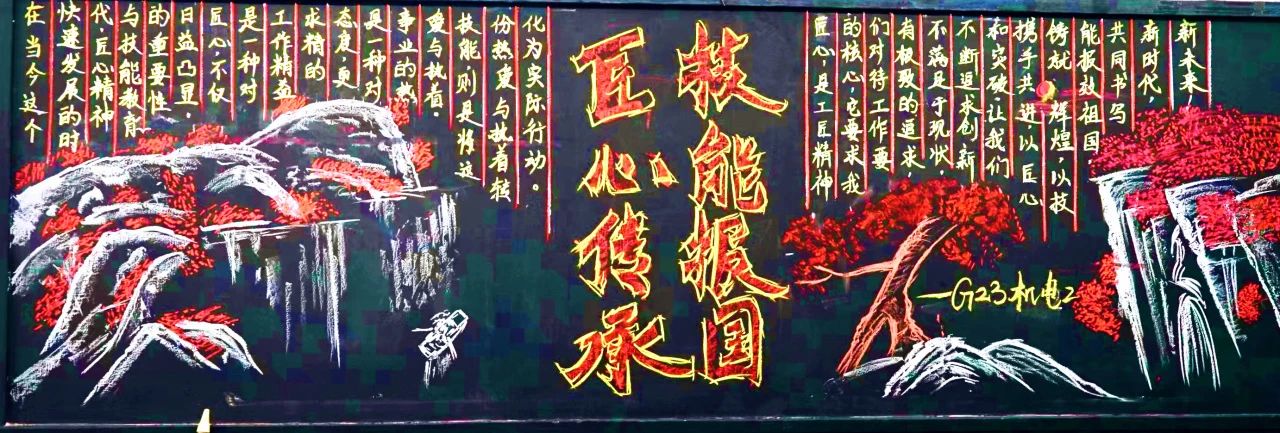 在当今这个
快速发展的时
代,匠心精神
与技能教育
的重要性
日益凸显。
匠心不仅
是一种对
工作精益
求精的
态度,更
是一种对
事业的热
爱与执着。
技能则是将这
份热爱与执着转
化为实际行动。
技能报国
匠心传承
匠心,是工匠精神
的核心,它要求我
们对待工作要
有极致的追求,
不满足于现状,
不断追求创新
和突破,让我们
携手共进,以匠心
铸就辉煌,以技
能报效祖国,
共同书写
新时代,
新未来
—G23机电2